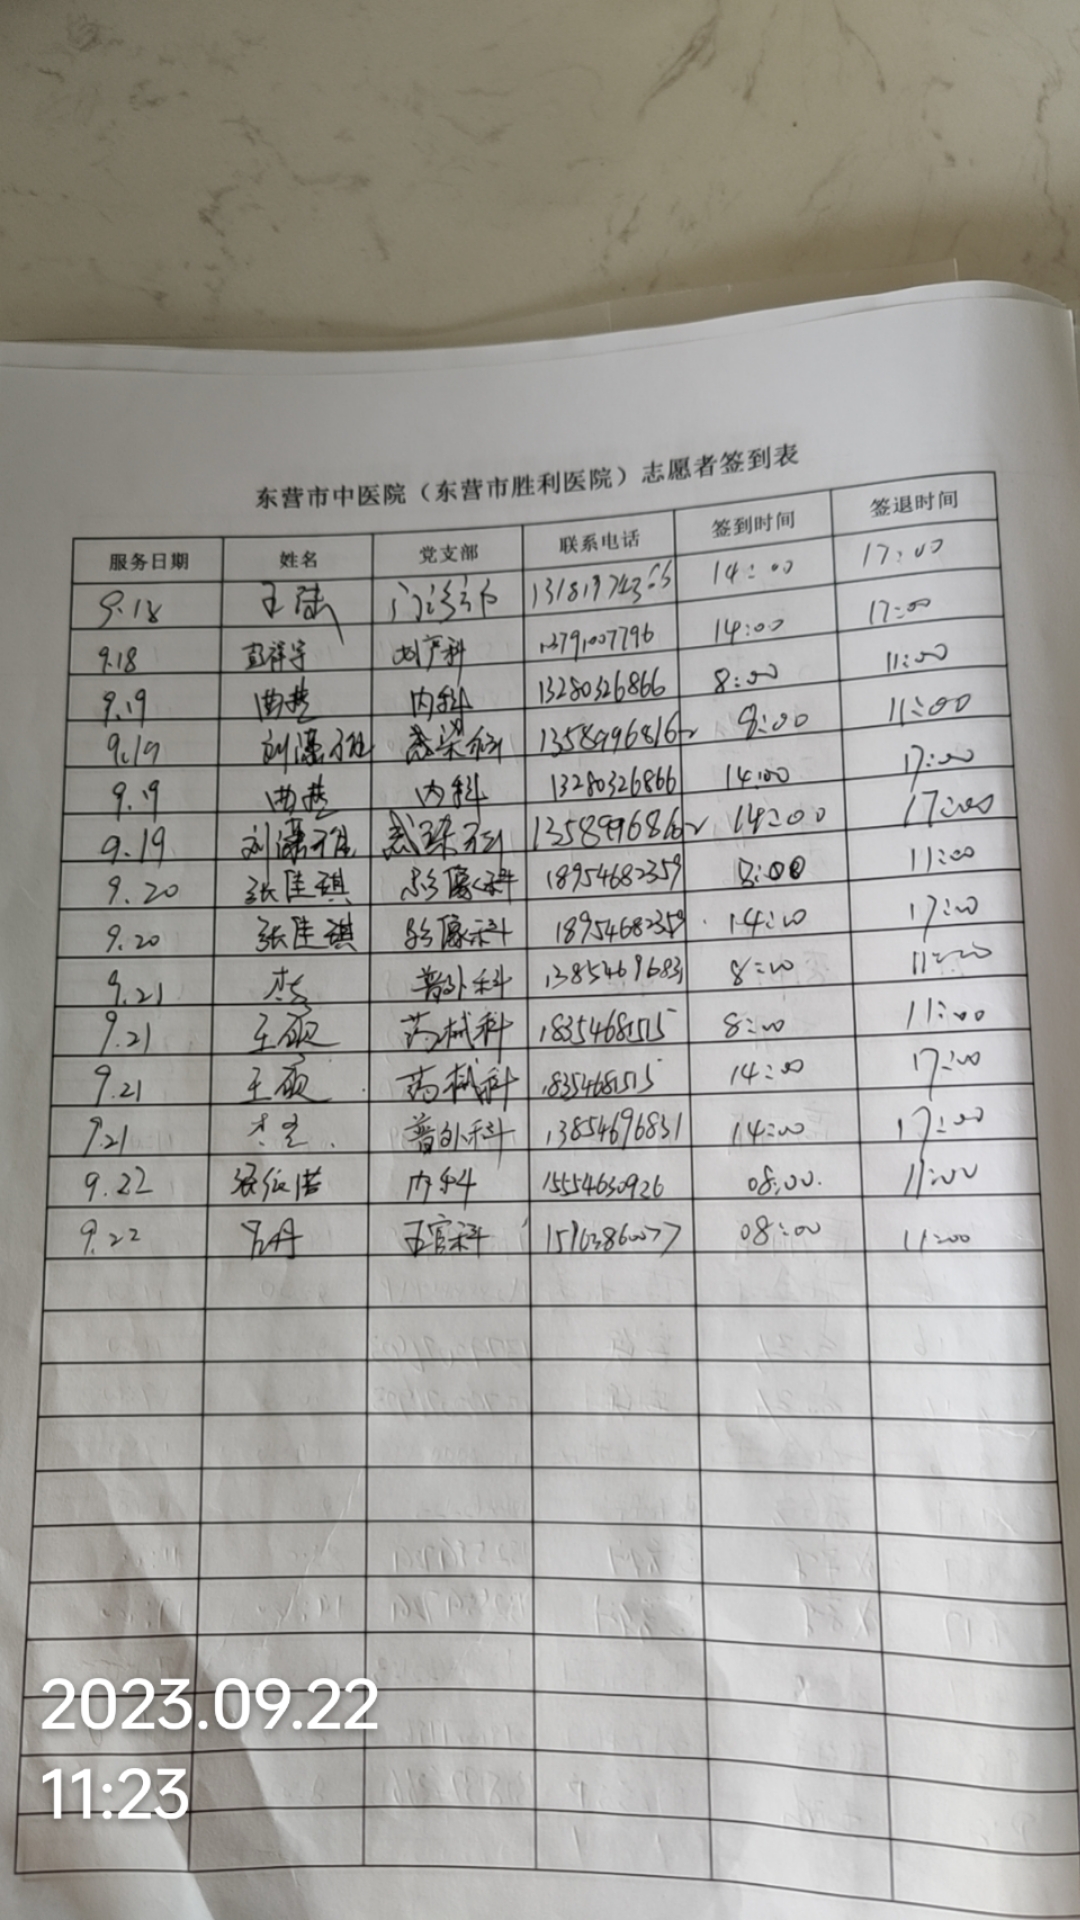 东营市中医院（东营市胜利医院）志愿者签到表
服务日期 姓名 党支部 联系电话 签到时间 签退时间
9.18 王陆 门诊 14:00 17:00
9.18 13791007796 14:00 17:00
9.19 曲艳 内科 13280326866 8:00 11:00
9.19 刘潇雅 感染科 8:00 11:00
9.19 曲艳 内科 13280326866 14:00 17:00
9.19 刘潇雅 感染科 14:00 17:00
9.20 张佳琪 影像科 18954682359 8:00 11:00
9.20 张佳琪 影像科 18954682359 14:00 17:00
9.21 普外科 13854696831 8:00 11:00
9.21 王硕 药械科 18354681515 8:00 11:00
9.21 王硕 药械科 18354681515 14:00 17:00
9.21 普外科 13854696831 14:00 17:00
9.22 内科 15554630926 08:00. 11:00
9.22 吕丹 五官科 08:00 11:00
2023.09.22
11:23